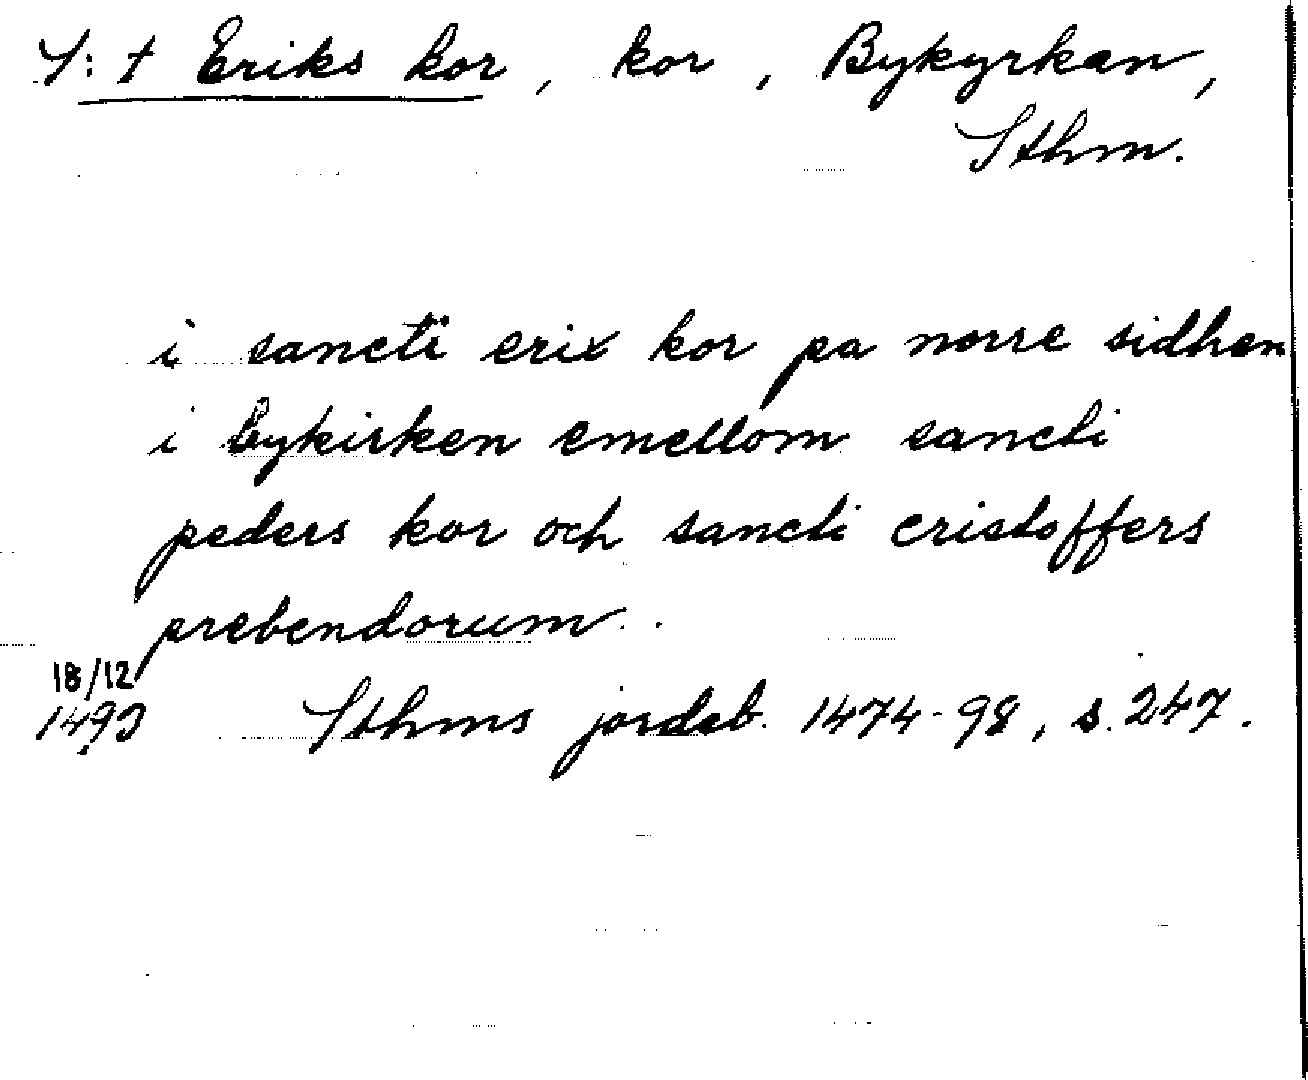 S:t Eriks kor, kor, Bykyrkan,
Sthm.
i sancti erix kor pa norre sidhen
i bykirken emellom sancti
peders kor och sancti cristoffers
prebendorum.
18/12
1493 Sthms jordeb. 1474-98, s. 247.